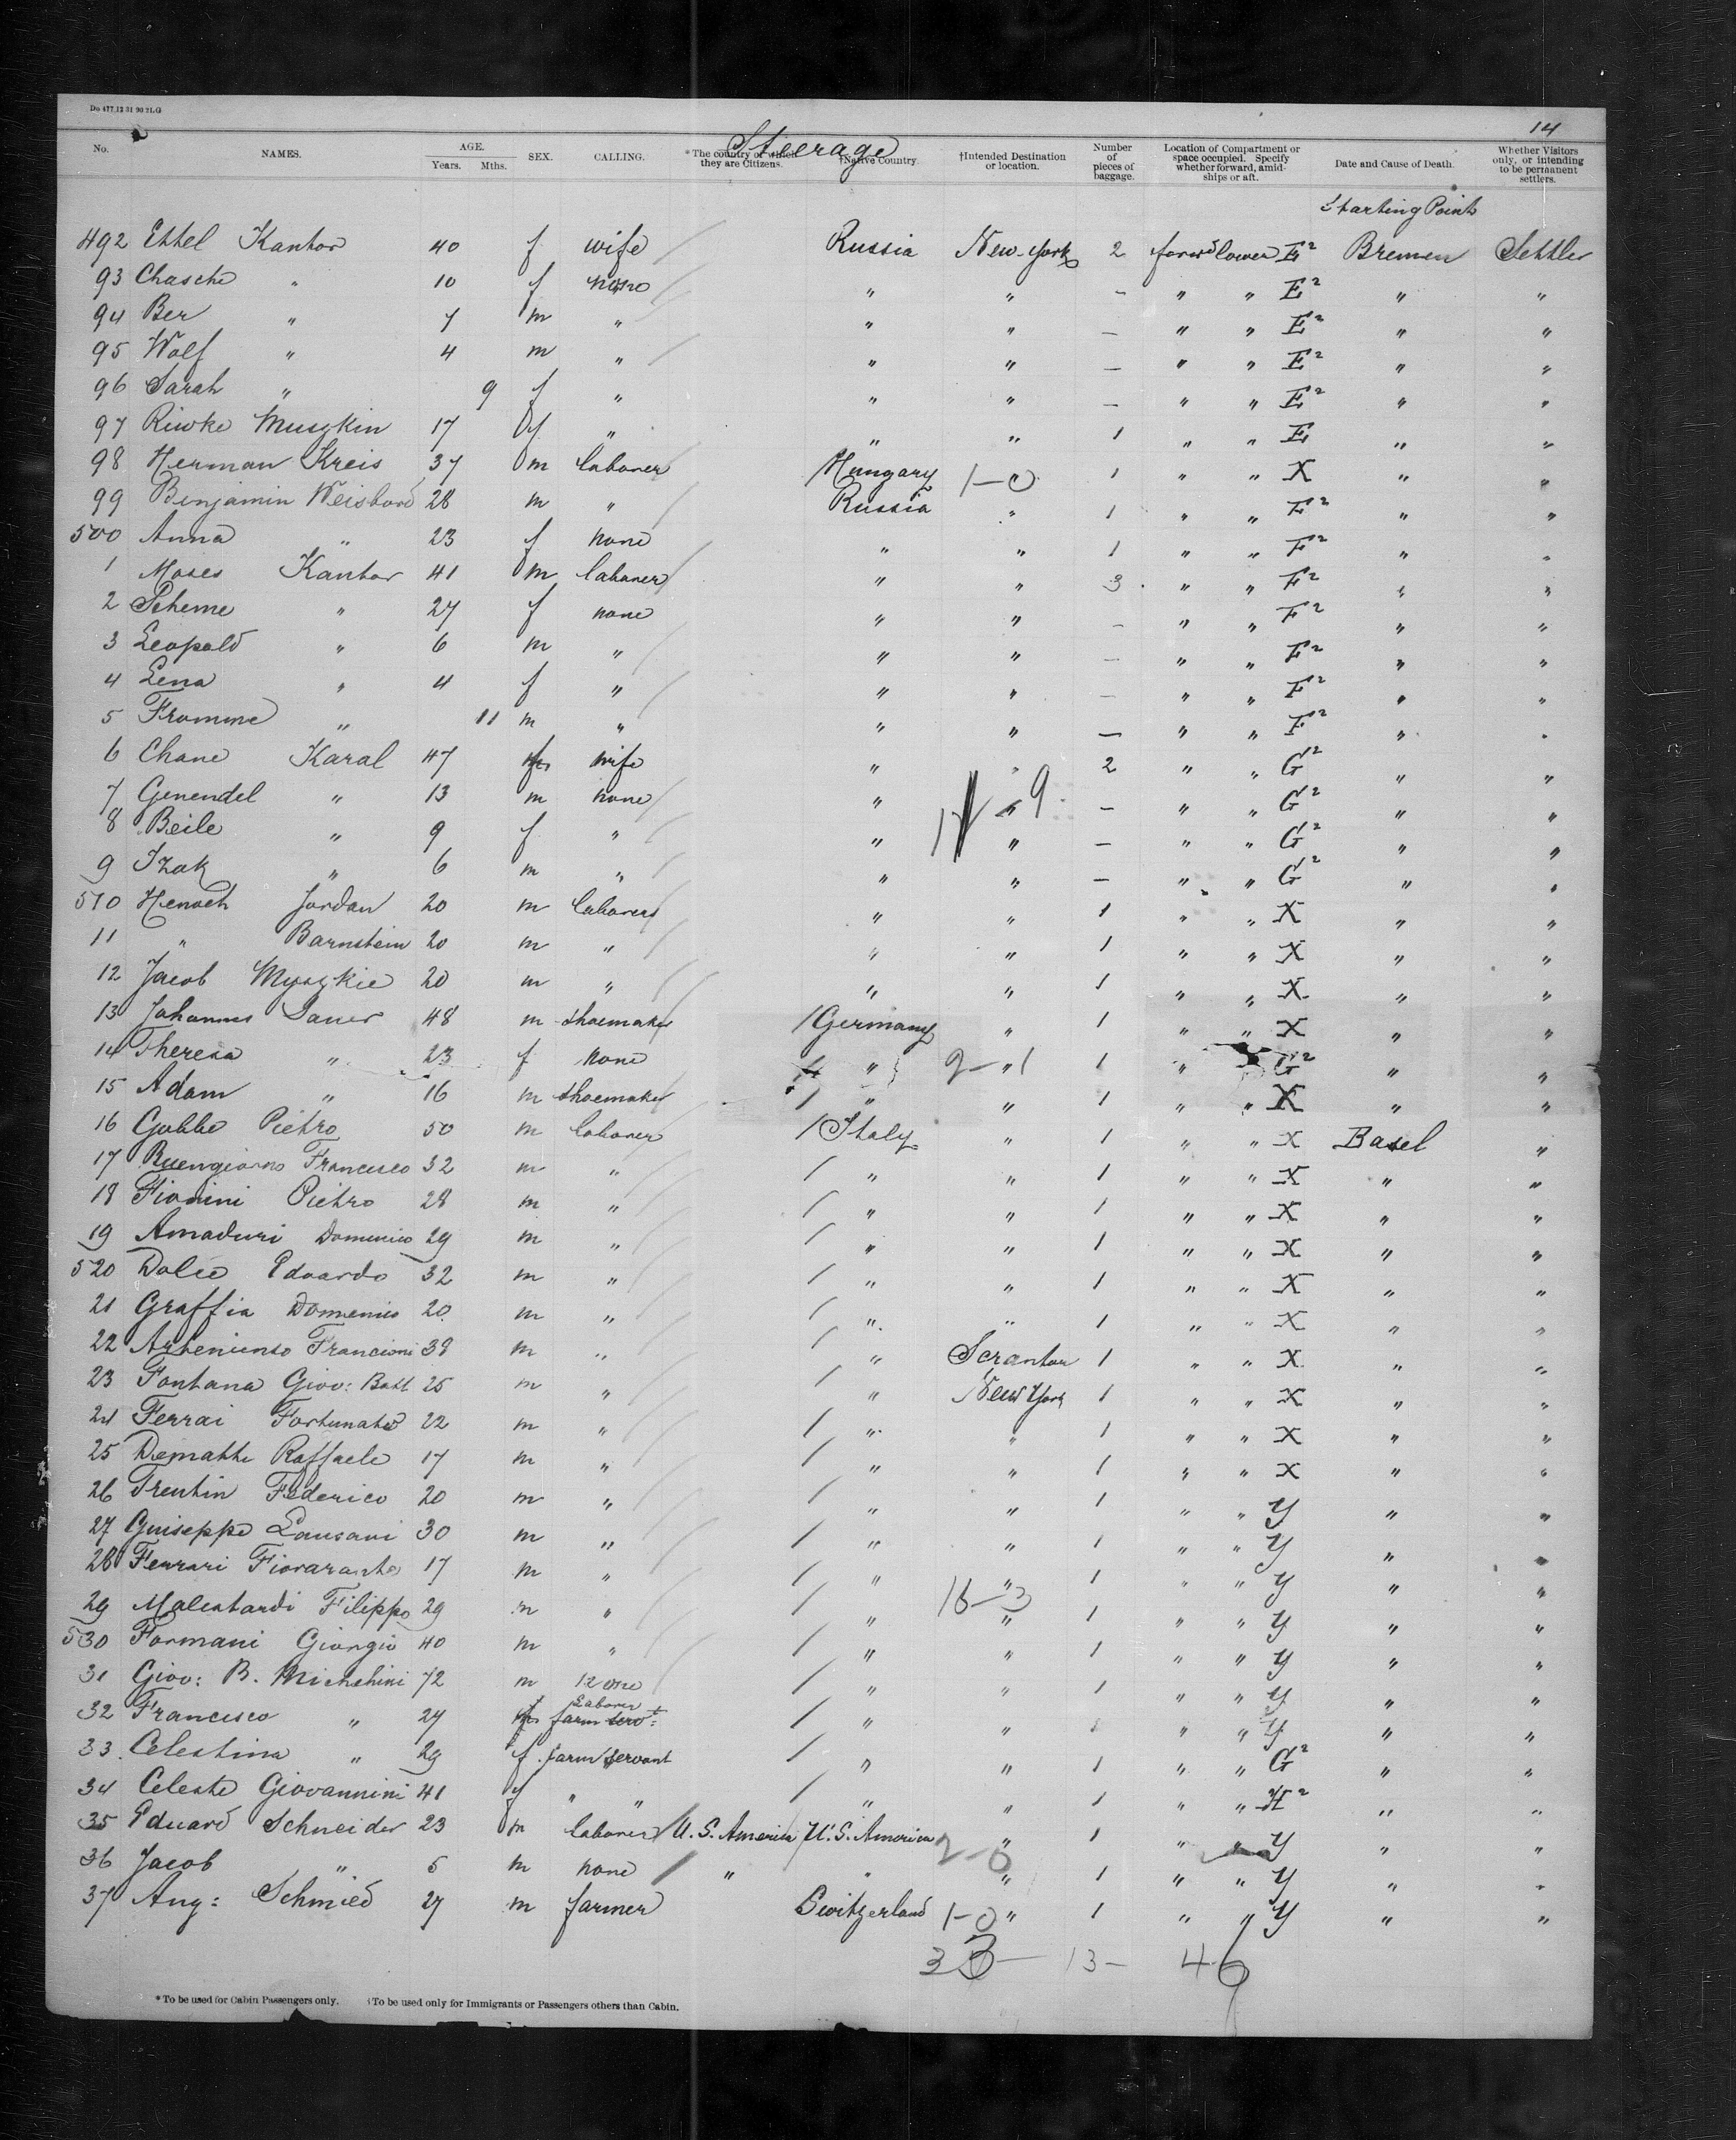 Do 477.12 31 90 2L.G
14
Steerage
No. NAMES. AGE. Years. Mths. SEX. CALLING. *The country of which they are Citizens. †Native Country. †Intended Destination or location. Number of pieces of baggage. Location of Compartment or space occupied. Specify whether forward, amidships or aft. Date and Cause of Death. Whether Visitors only, or intending to be permanent settlers.
Starting Point
492 Ettel Kantor 40 f wife Russia New-York 2 forwd lower E² Bremen Settler
93 Chasche " 10 f none " " – " " E² " "
94 Ber " 7 m " " " – " " E² " "
95 Wolf " 4 m " " " – " " E² " "
96 Sarah " 9 f " " " – " " E² " "
97 Riwke Muszkin 17 f " " " 1 " " E " "
98 Herman Kreis 37 m laborer / Hungary 1–0 1 " " X " "
99 Benjamin Weisbord 28 m " Russia " 1 " " F² " "
500 Anna " 23 f none " " 1 " " F² " "
1 Moses Kantor 41 m laborer " " 3 " " F² " "
2 Scheme " 27 f none " " – " " F² " "
3 Leopold " 6 m " " " – " " F² " "
4 Lena " 4 f " " " – " " F² " "
5 Fromme " 11 m " " " – " " F² " "
6 Chane Karal 47 f wife " " 2 " " G² " "
7 Genendel " 13 m none " " 9 – " " G² " "
8 Beile " 9 f " " " – " " G² " "
9 Izak " 6 m " " " – " " G² " "
510 Henoch Jordan 20 m laborer " " 1 " " X " "
11 " Barnstein 20 m " " " 1 " " X " "
12 Jacob Myszkie 20 m " " " 1 " " X " "
13 Johannes Sauer 48 m shoemaker / Germany " 1 " " X " "
14 Theresa " 23 f none " 2–1 " 1 " " G² " "
15 Adam " 16 m shoemaker / " " 1 " " X " "
16 Gobbe Pietro 50 m laborer / Italy " 1 " " X Basel "
17 Buengiorno Francesco 32 m " / " " 1 " " X " "
18 Fionini Pietro 28 m " / " " 1 " " X " "
19 Amaduri Domenico 29 m " / " " 1 " " X " "
520 Dolce Edoardo 32 m " / " " 1 " " X " "
21 Graffia Domenico 20 m " / " " 1 " " X " "
22 Francioni 38 m " / " Scranton 1 " " X " "
23 Fontana Giov: Batt 25 m " / " New York 1 " " X " "
24 Ferrai Fortunato 22 m " / " " 1 " " X " "
25 Dematte Raffaele 17 m " / " " 1 " " X " "
26 Trentin Federico 20 m " / " " 1 " " Y " "
27 Guiseppe Lausani 30 m " / " " 1 " " Y " "
28 Ferrari Fiorarante 17 m " / " " 1 " " Y " "
29 Malestardi Filippo 29 m " / " 18–3 " 1 " " Y " "
530 Formani Giorgio 40 m " / " " 1 " " Y " "
31 Giov: B. Michelini 72 m none / " " 1 " " Y " "
32 Francesco " 27 laborer farm servt: / " " 1 " " Y " "
33 Celestina " 29 f farm servant / " " 1 " " G² " "
34 Celeste Giovannini 41 f " " / " " 1 " " H² " "
35 Eduard Schneider 23 m laborer / U.S. America / U.S. America " 1 " " Y " "
36 Jacob " 5 m none / " " 2–0 " 1 " " Y " "
37 Aug: Schmied 27 m farmer Switzerland 1–0 " 1 " " Y " "
33– 13– 46
*To be used for Cabin Passengers only. †To be used only for Immigrants or Passengers others than Cabin.